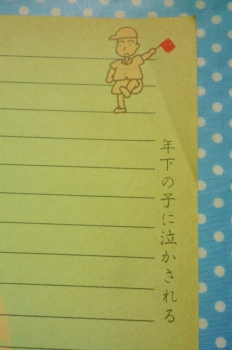 年下の子に泣かされる